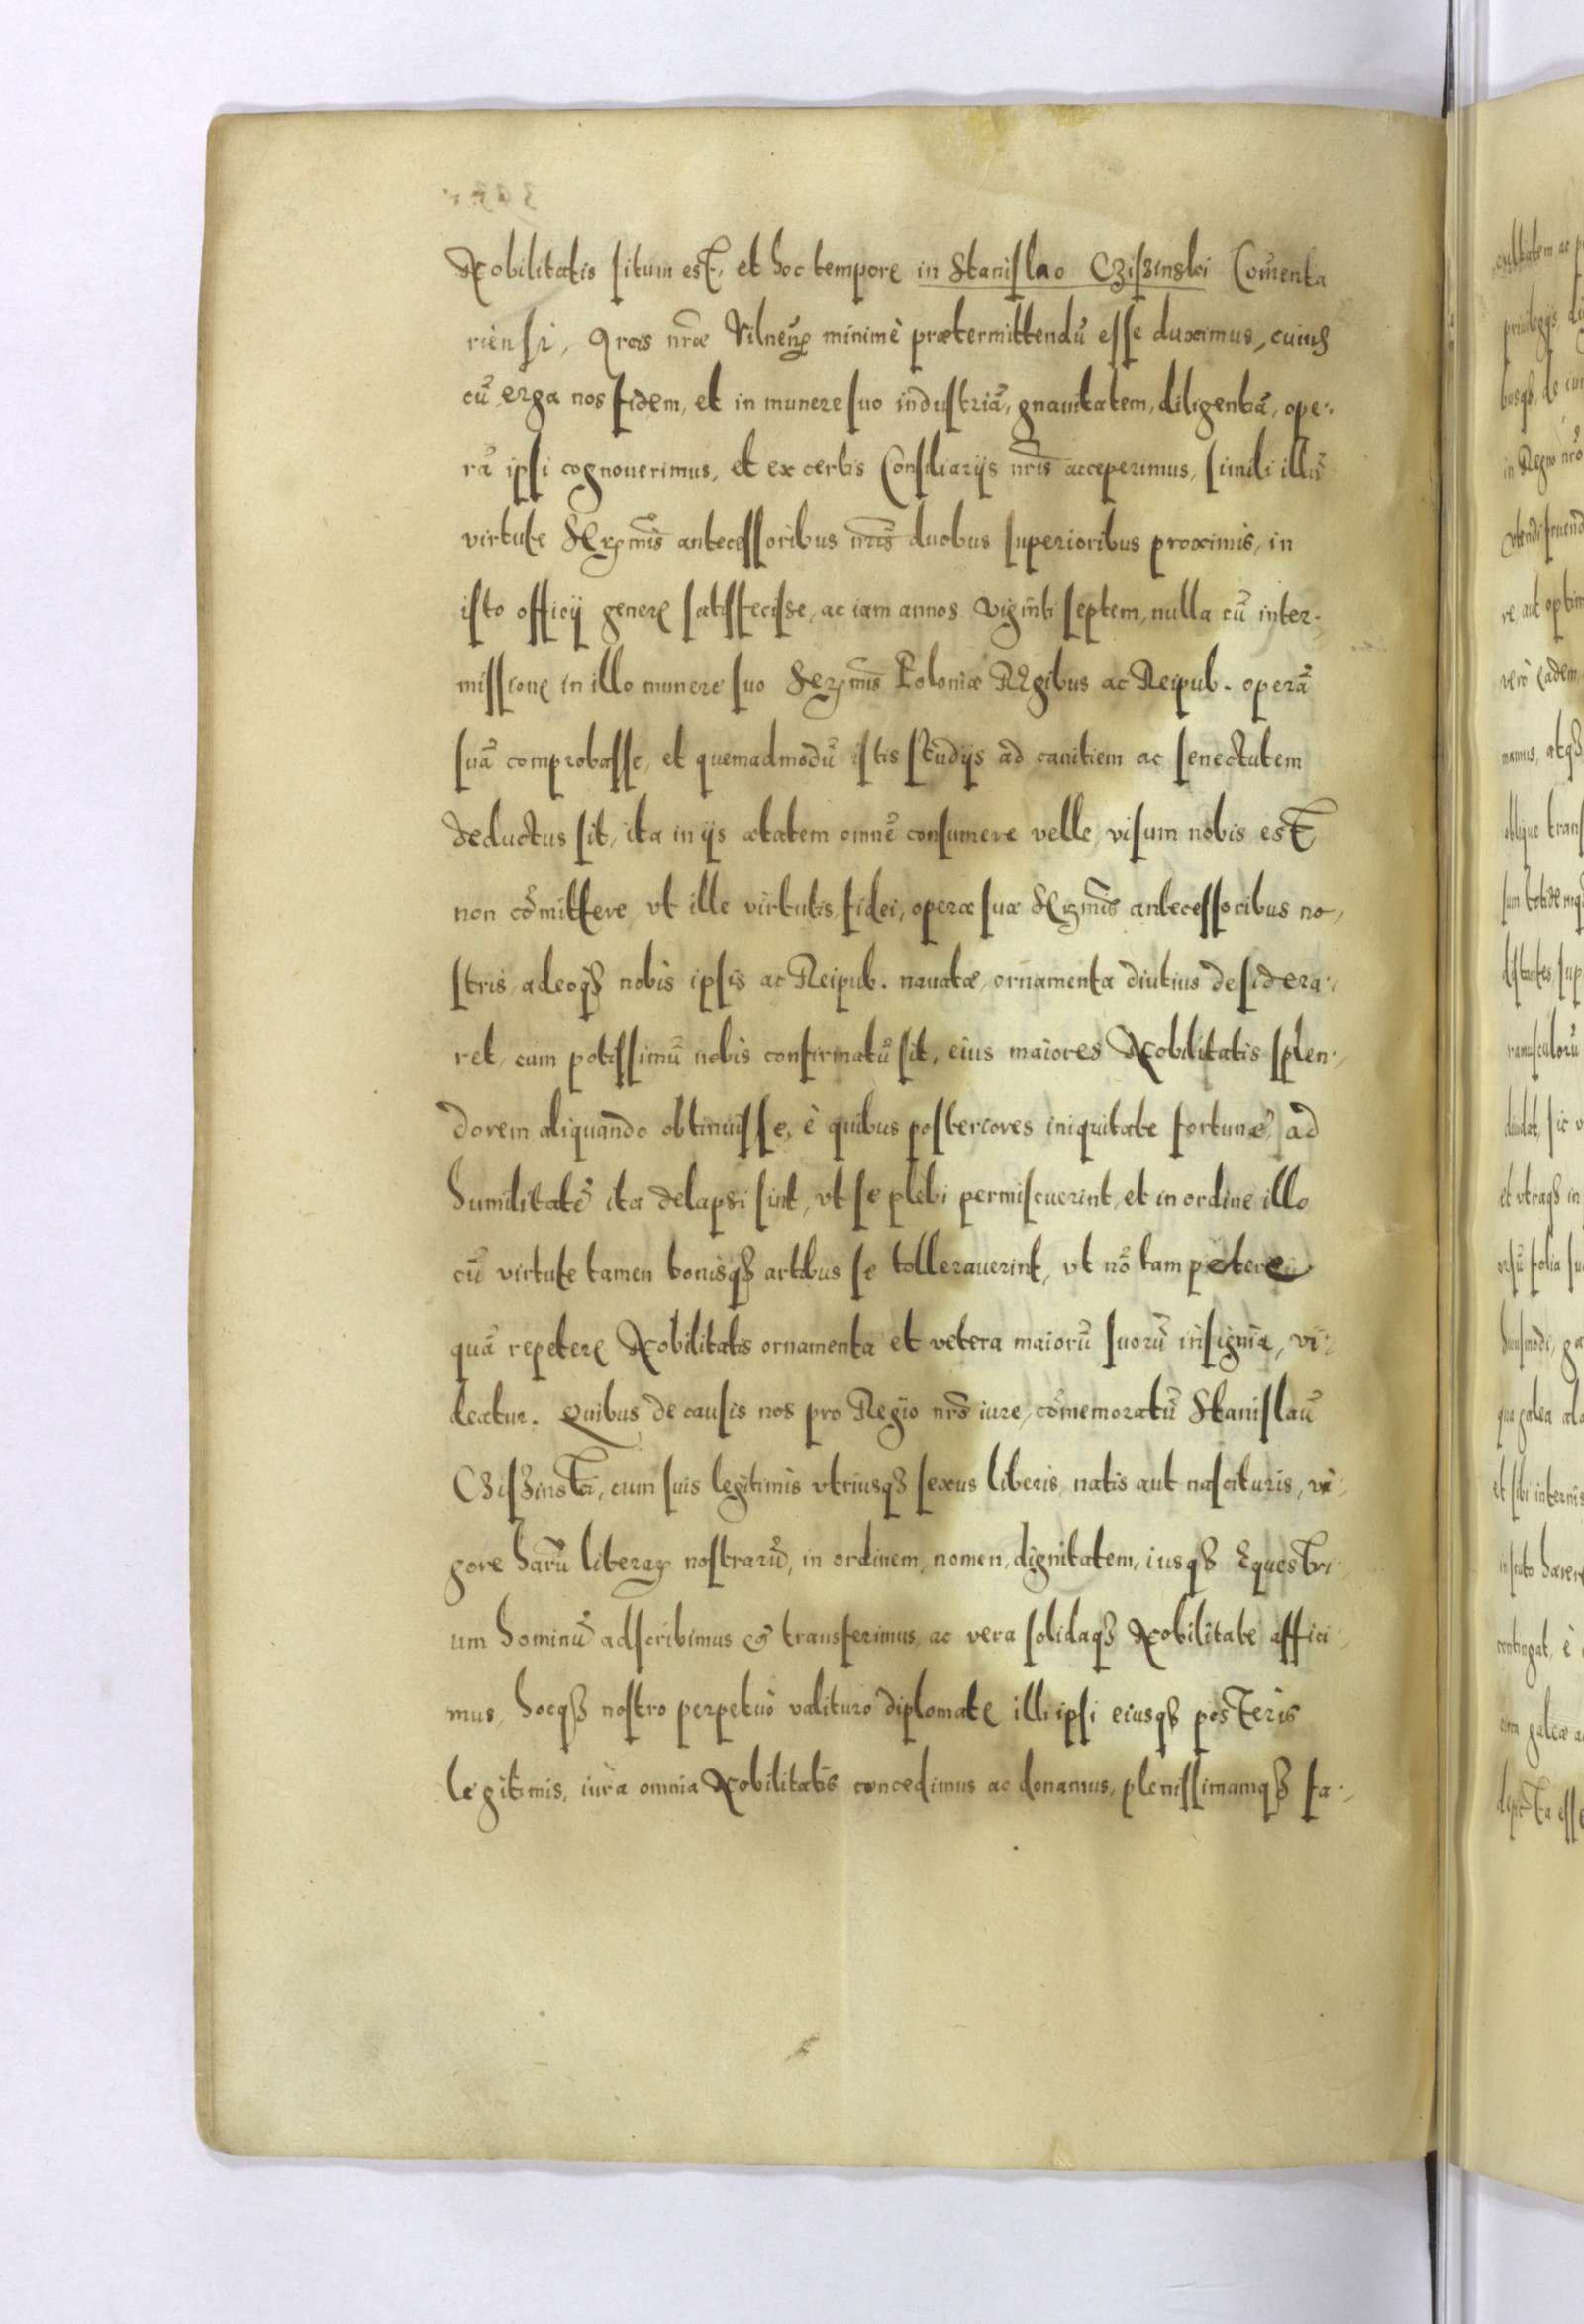 Nobilitatis situm est, et hoc tempore in Stanislao Cziszinski Com̃enta
riensi, Arcis nr̃æ Vilnen̄ minimè prætermittendũ esse duximus, cuius
cũ erga nos fidem, et in munere suo industriã, gnauitatem, diligentiã, ope-
rã ipsi cognouerimus, et ex certis Consiliarijs nr̃is acceperimus, simili illũ
virtute Ser̃mis antecessoribus nr̃is duobus superioribus proximis, in
isto officij genere satisfecisse, ac iam annos viginti septem, nulla cũ inter-
missione in illo munere suo Ser̃mis Poloniæ Regibus ac Reipub. operã
suã comprobasse, et quemadmodũ istis studijs ad canitiem ac senectutem
deductus sit, ita in ijs ætatem omnẽ consumere velle, visum nobis est
non com̃ittere, vt ille virtutis, fidei, operæ suæ Ser̃mis antecessoribus no-
stris, adeoqȝ nobis ipsis ac Reipub. nauatæ, ornamenta diutius desidera-
ret, cum potissimũ nobis confirmatũ sit, eius maiores Nobilitatis splen-
dorem aliquando obtinuisse, è quibus posteriores iniquitate fortunę, ad
humilitatẽ ita delapsi sint, vt se plebi permiscuerint, et in ordine illo
cũ virtute tamen bonisqȝ artibus se tollerauerint, vt nõ tam petere
quã repetere Nobilitatis ornamenta et vetera maiorũ suorũ insignia, vi-
deatur. Quibus de causis nos pro Regio nr̃o iure, com̃emoratũ Stanislaũ
Cziszinski, cum suis legitimis vtriusqȝ sexus liberis, natis aut nascituris, vi-
gore harũ literaꝝ nostrarũ, in ordinem, nomen, dignitatem, iusqȝ Equestri
um hominũ adscribimus & transferimus, ac vera solidaqȝ Nobilitate affici
mus, hocqȝ nostro perpetuò valituro diplomate illi ipsi eiusqȝ posteris
legitimis, iura omnia Nobilitatis concedimus ac donamus, plenissimamqȝ fa-